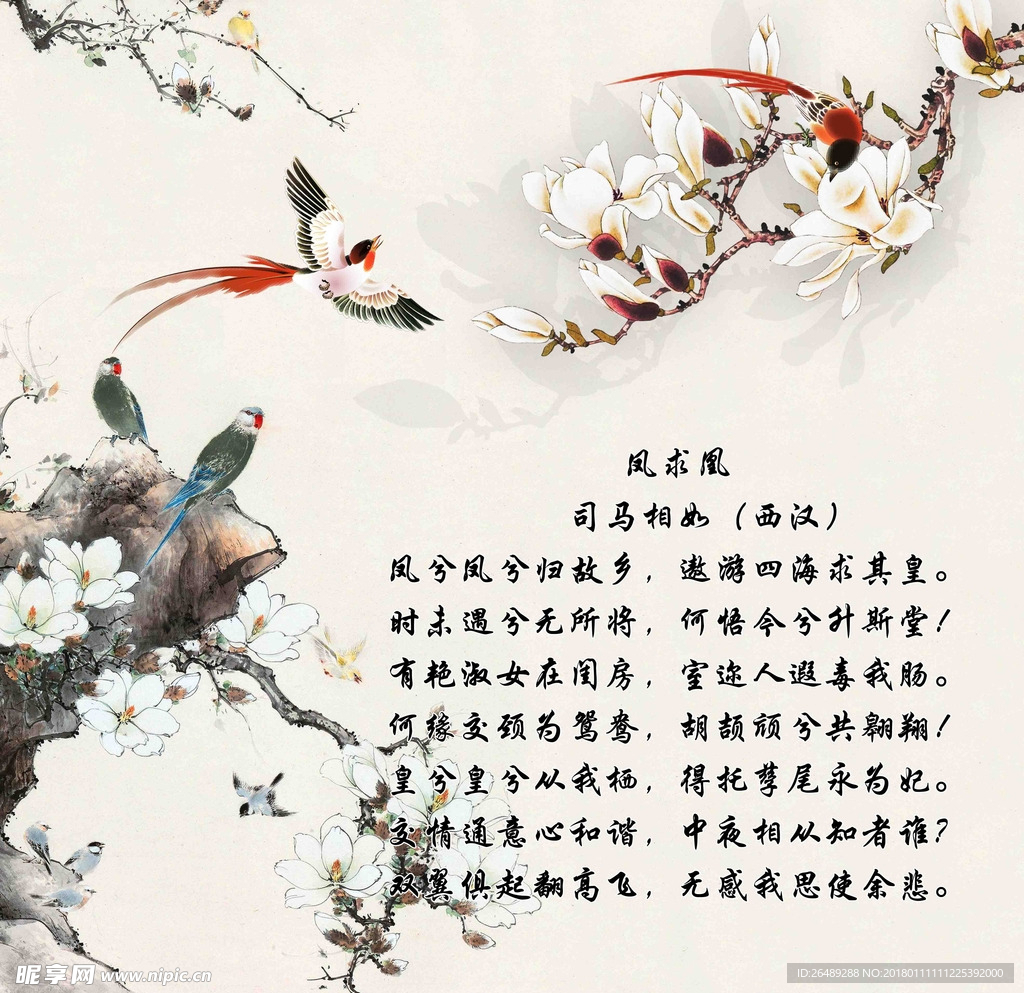 凤求凰
司马相如（西汉）
凤兮凤兮归故乡，遨游四海求其皇。
时未遇兮无所将，何悟今兮升斯堂！
有艳淑女在闺房，室迩人遐毒我肠。
何缘交颈为鸳鸯，胡颉颃兮共翱翔！
皇兮皇兮从我栖，得托孳尾永为妃。
交情通意心和谐，中夜相从知者谁？
双翼俱起翻高飞，无感我思使余悲。
昵享网 www.nipic.cn
ID:26489288 NO:20180111111225392000